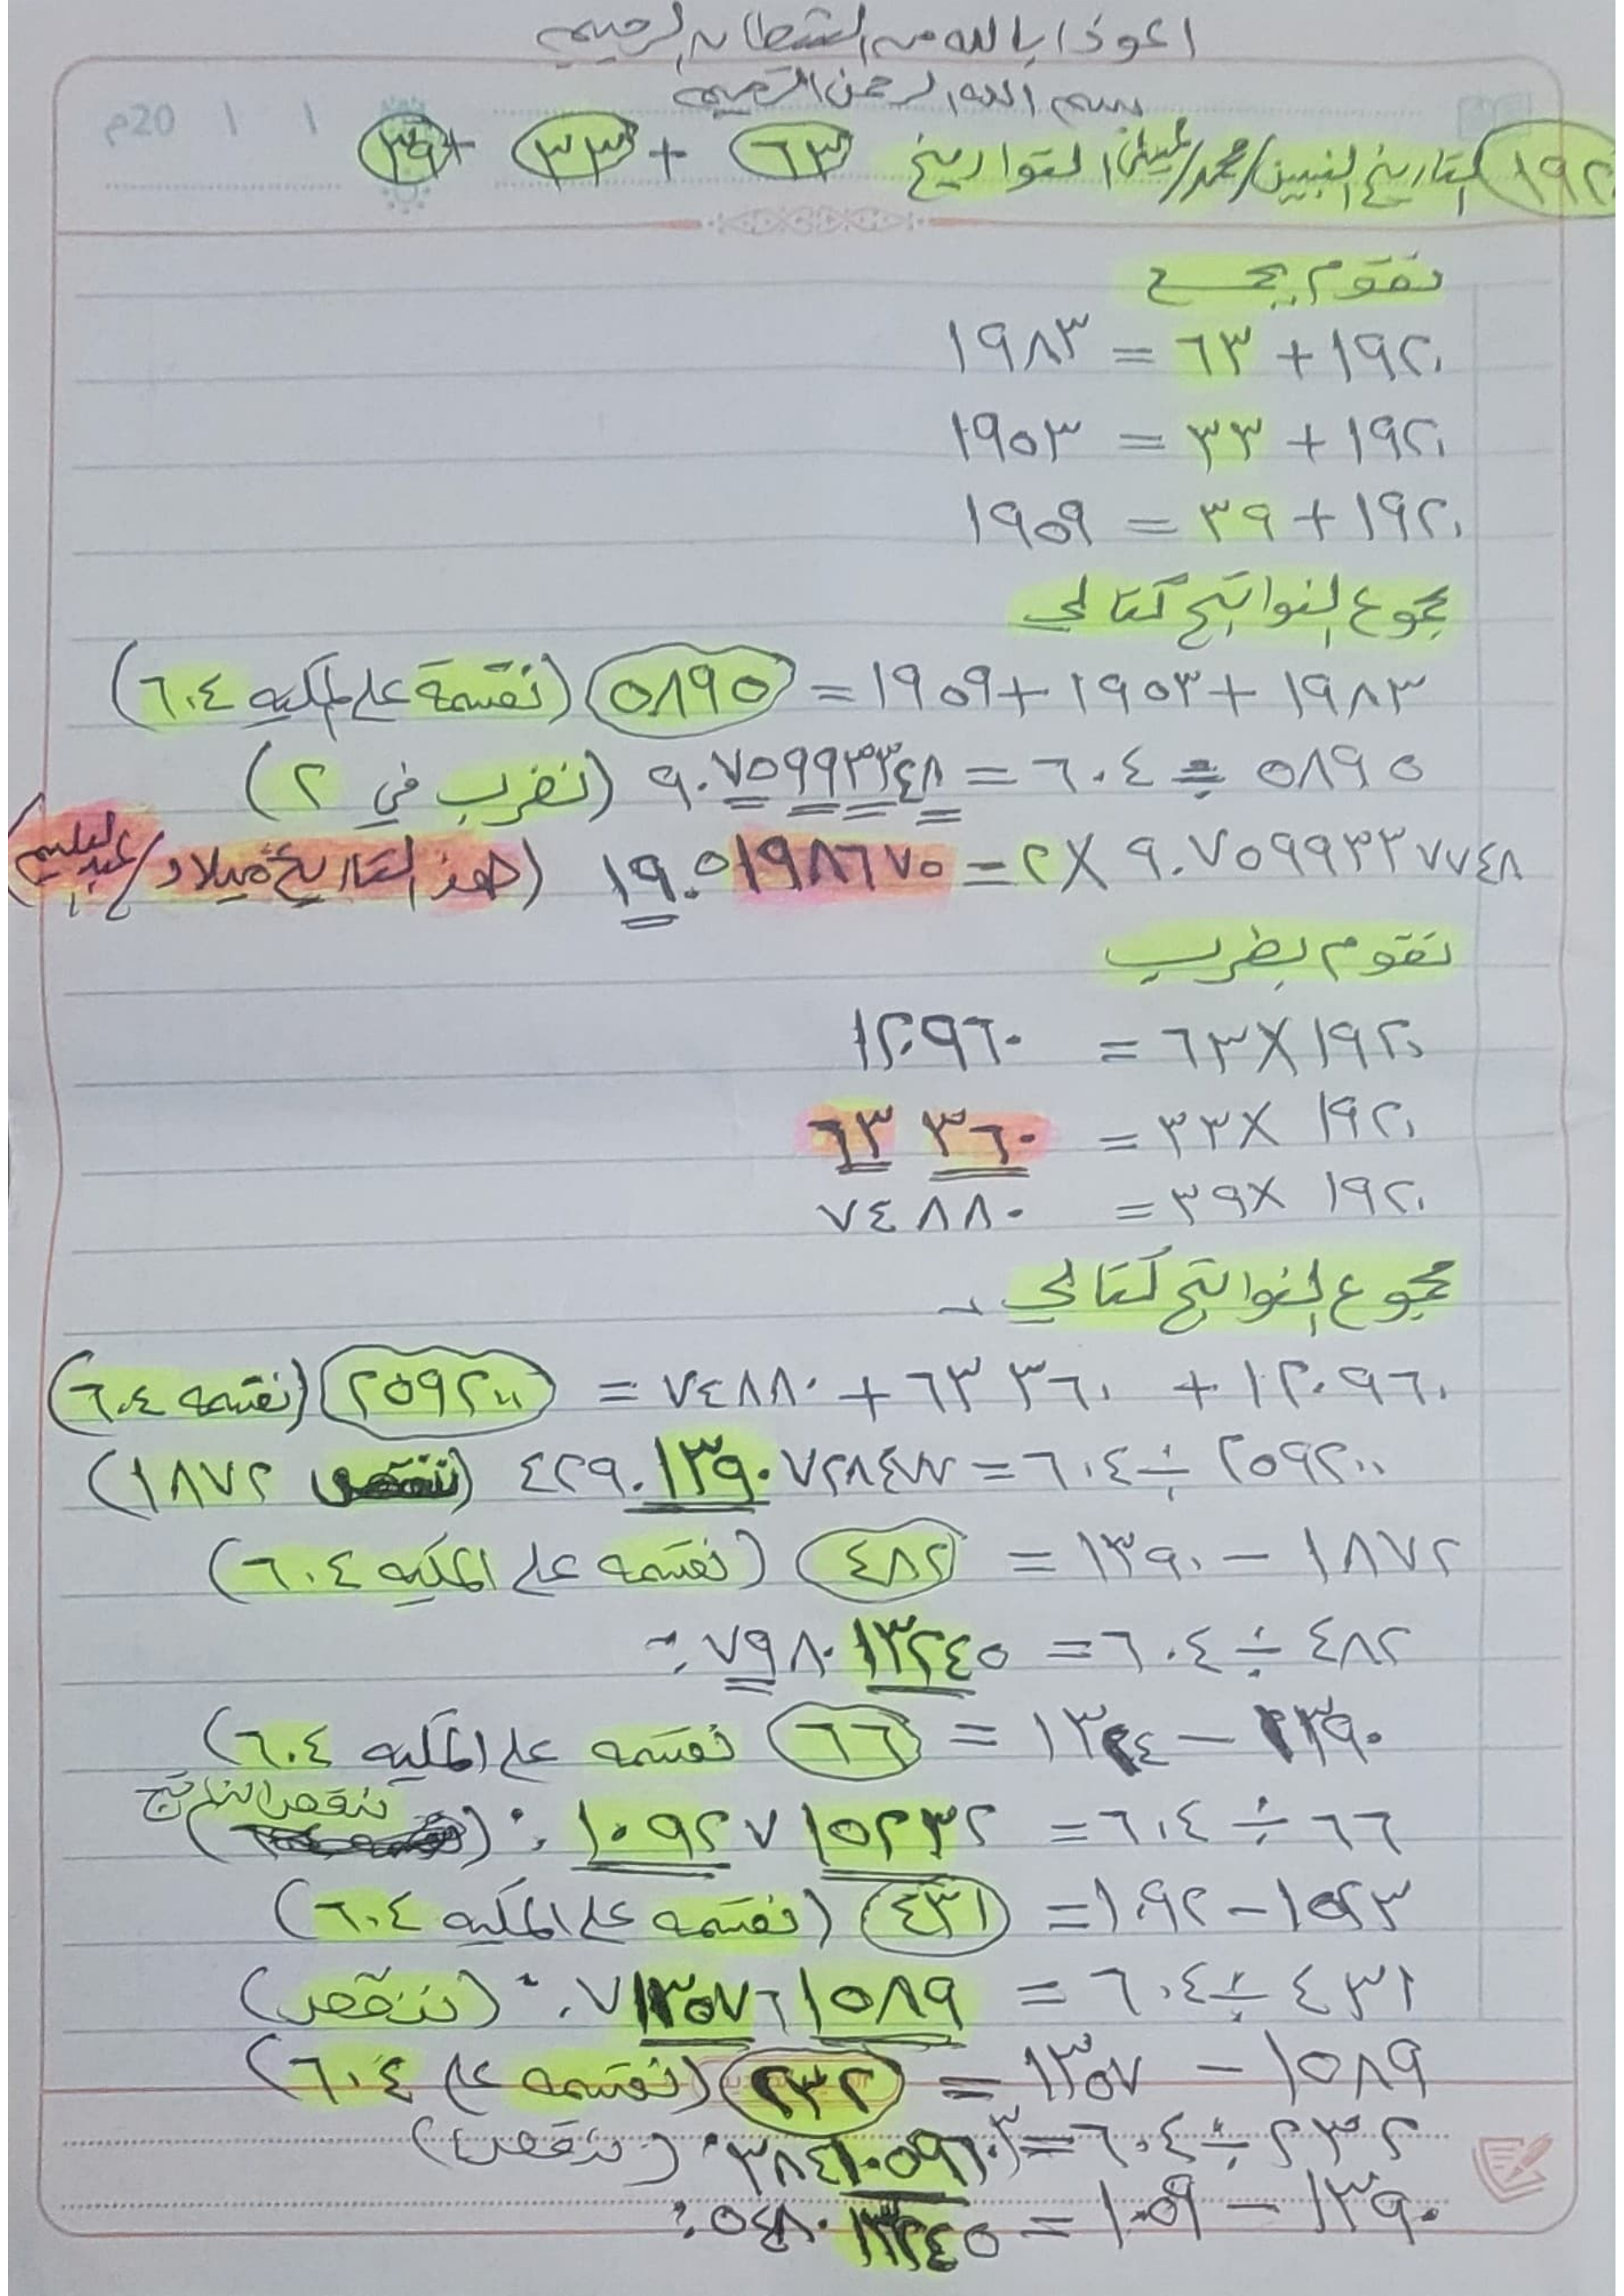 اعوذ بالله من الشيطان الرجيم
بسم الله الرحمن الرحيم
م20 / /
١٩٢٠ التاريخ النبيين/محمد/عيسى/ التواريخ ٦٣ + ٣٣ + ٣٩
نقوم بجمع
١٩٢٠ + ٦٣ = ١٩٨٣
١٩٢٠ + ٣٣ = ١٩٥٣
١٩٢٠ + ٣٩ = ١٩٥٩
مجموع النواتج كتالي
١٩٨٣ + ١٩٥٣ + ١٩٥٩ = ٥٨٩٥ (نقسمة على المكيه ٦٠٤)
٥٨٩٥ ÷ ٦٠٤ = ٩.٧٥٩٩٣٣٤٨ (نضرب في ٢)
٩.٧٥٩٩٣٣٧٧٤٨ × ٢ = ١٩.٥١٩٨٦٧٥ (هذ التاريخ ميلاد/
نقوم بضرب
١٩٢٠ × ٦٣ = ١٢٠٩٦٠
١٩٢٠ × ٣٣ = ٦٣٣٦٠
١٩٢٠ × ٣٩ = ٧٤٨٨٠
مجموع النواتج كتالي
١٢٠٩٦٠ + ٦٣٣٦٠ + ٧٤٨٨٠ = ٢٥٩٢٠٠ (نقسمه ٦٠٤)
٢٥٩٢٠٠ ÷ ٦٠٤ = ٤٢٩.١٣٩٠٧٢٨٤٧٧ (ننقص ١٨٧٢)
١٨٧٢ − ١٣٩٠ = ٤٨٢ (نقسمه على المكيه ٦٠٤)
٤٨٢ ÷ ٦٠٤ = ٧٩٨٠١٣٢٤٥ .٠
١٣٩٠ − ١٣٢٤ = ٦٦ نقسمه على المكيه ٦٠٤)
٦٦ ÷ ٦٠٤ = ١٠٩٢٧١٥٢٣٢ .٠ (ننقص الناتج)
١٥٢٣ − ١٠٩٢ = ٤٣١ (نقسمه على المكيه ٦٠٤)
٤٣١ ÷ ٦٠٤ = ٧١٣٥٧٦١٥٨٩ .٠ (ننقص)
١٥٨٩ − ١٣٥٧ = ٢٣٢ (نقسمه على ٦٠٤)
٢٣٢ ÷ ٦٠٤ = ٣٨٤١٠٥٩٦٠٣ .٠ (ننقص)
١٣٩٠ − ١٠٥٩ =